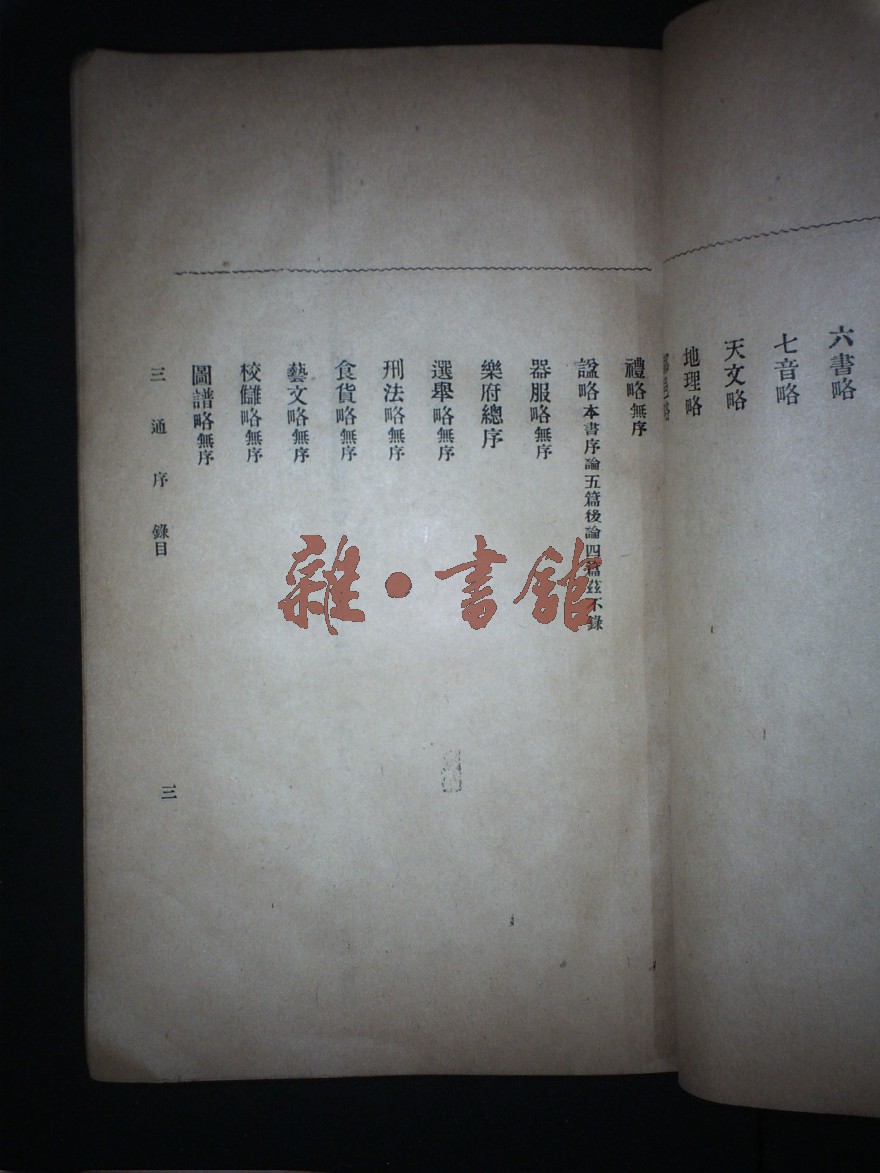 六書略
七音略
天文略
地理略
禮略無序
諡略本書序論五篇後論四篇茲不錄
器服略無序
樂府總序
選舉略無序
刑法略無序
食貨略無序
藝文略無序
校讎略無序
圖譜略無序
三通序 錄目
三
雜·書館